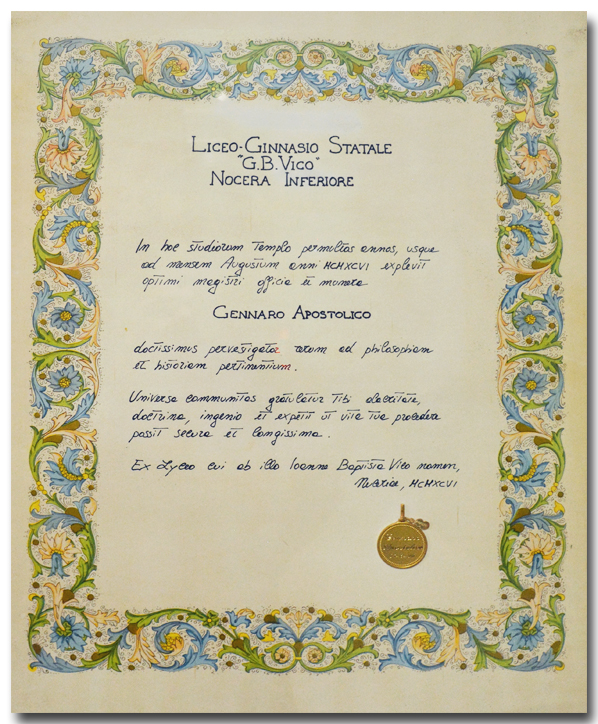 LICEO-GINNASIO STATALE
"G.B. VICO"
NOCERA INFERIORE
In hoc studiorum Templo permultos annos, usque
ad mensem Augustum anni MCMXCVI explevit
optimi magistri officia et munera
GENNARO APOSTOLICO
doctissimus pervestigator rerum ad philosophiam
et historiam pertinentium.
Universa communitas gratulatur Tibi alacritate,
doctrina, ingenio et expetit ut vita tua procedere
possit secura et longissima.
Ex Lyceo cui ab illo Ioanne Baptista Vico nomen,
Nuceriae, MCMXCVI